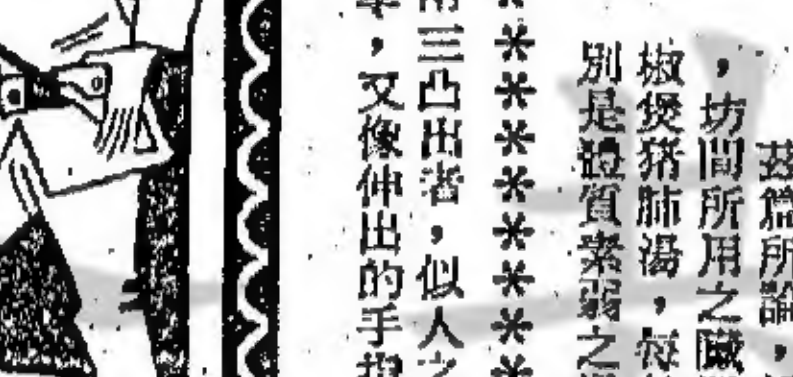 茲篇所論，
，坊間所用之臟
椒煲豬肺湯，每
別是體質素弱之
＊＊＊＊＊＊＊＊＊
三凸出者，似人之
，又像伸出的手指